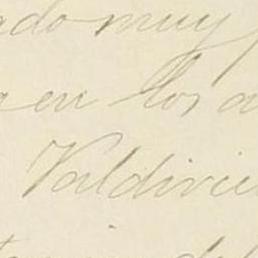 ado muy
en los a
Valdivie